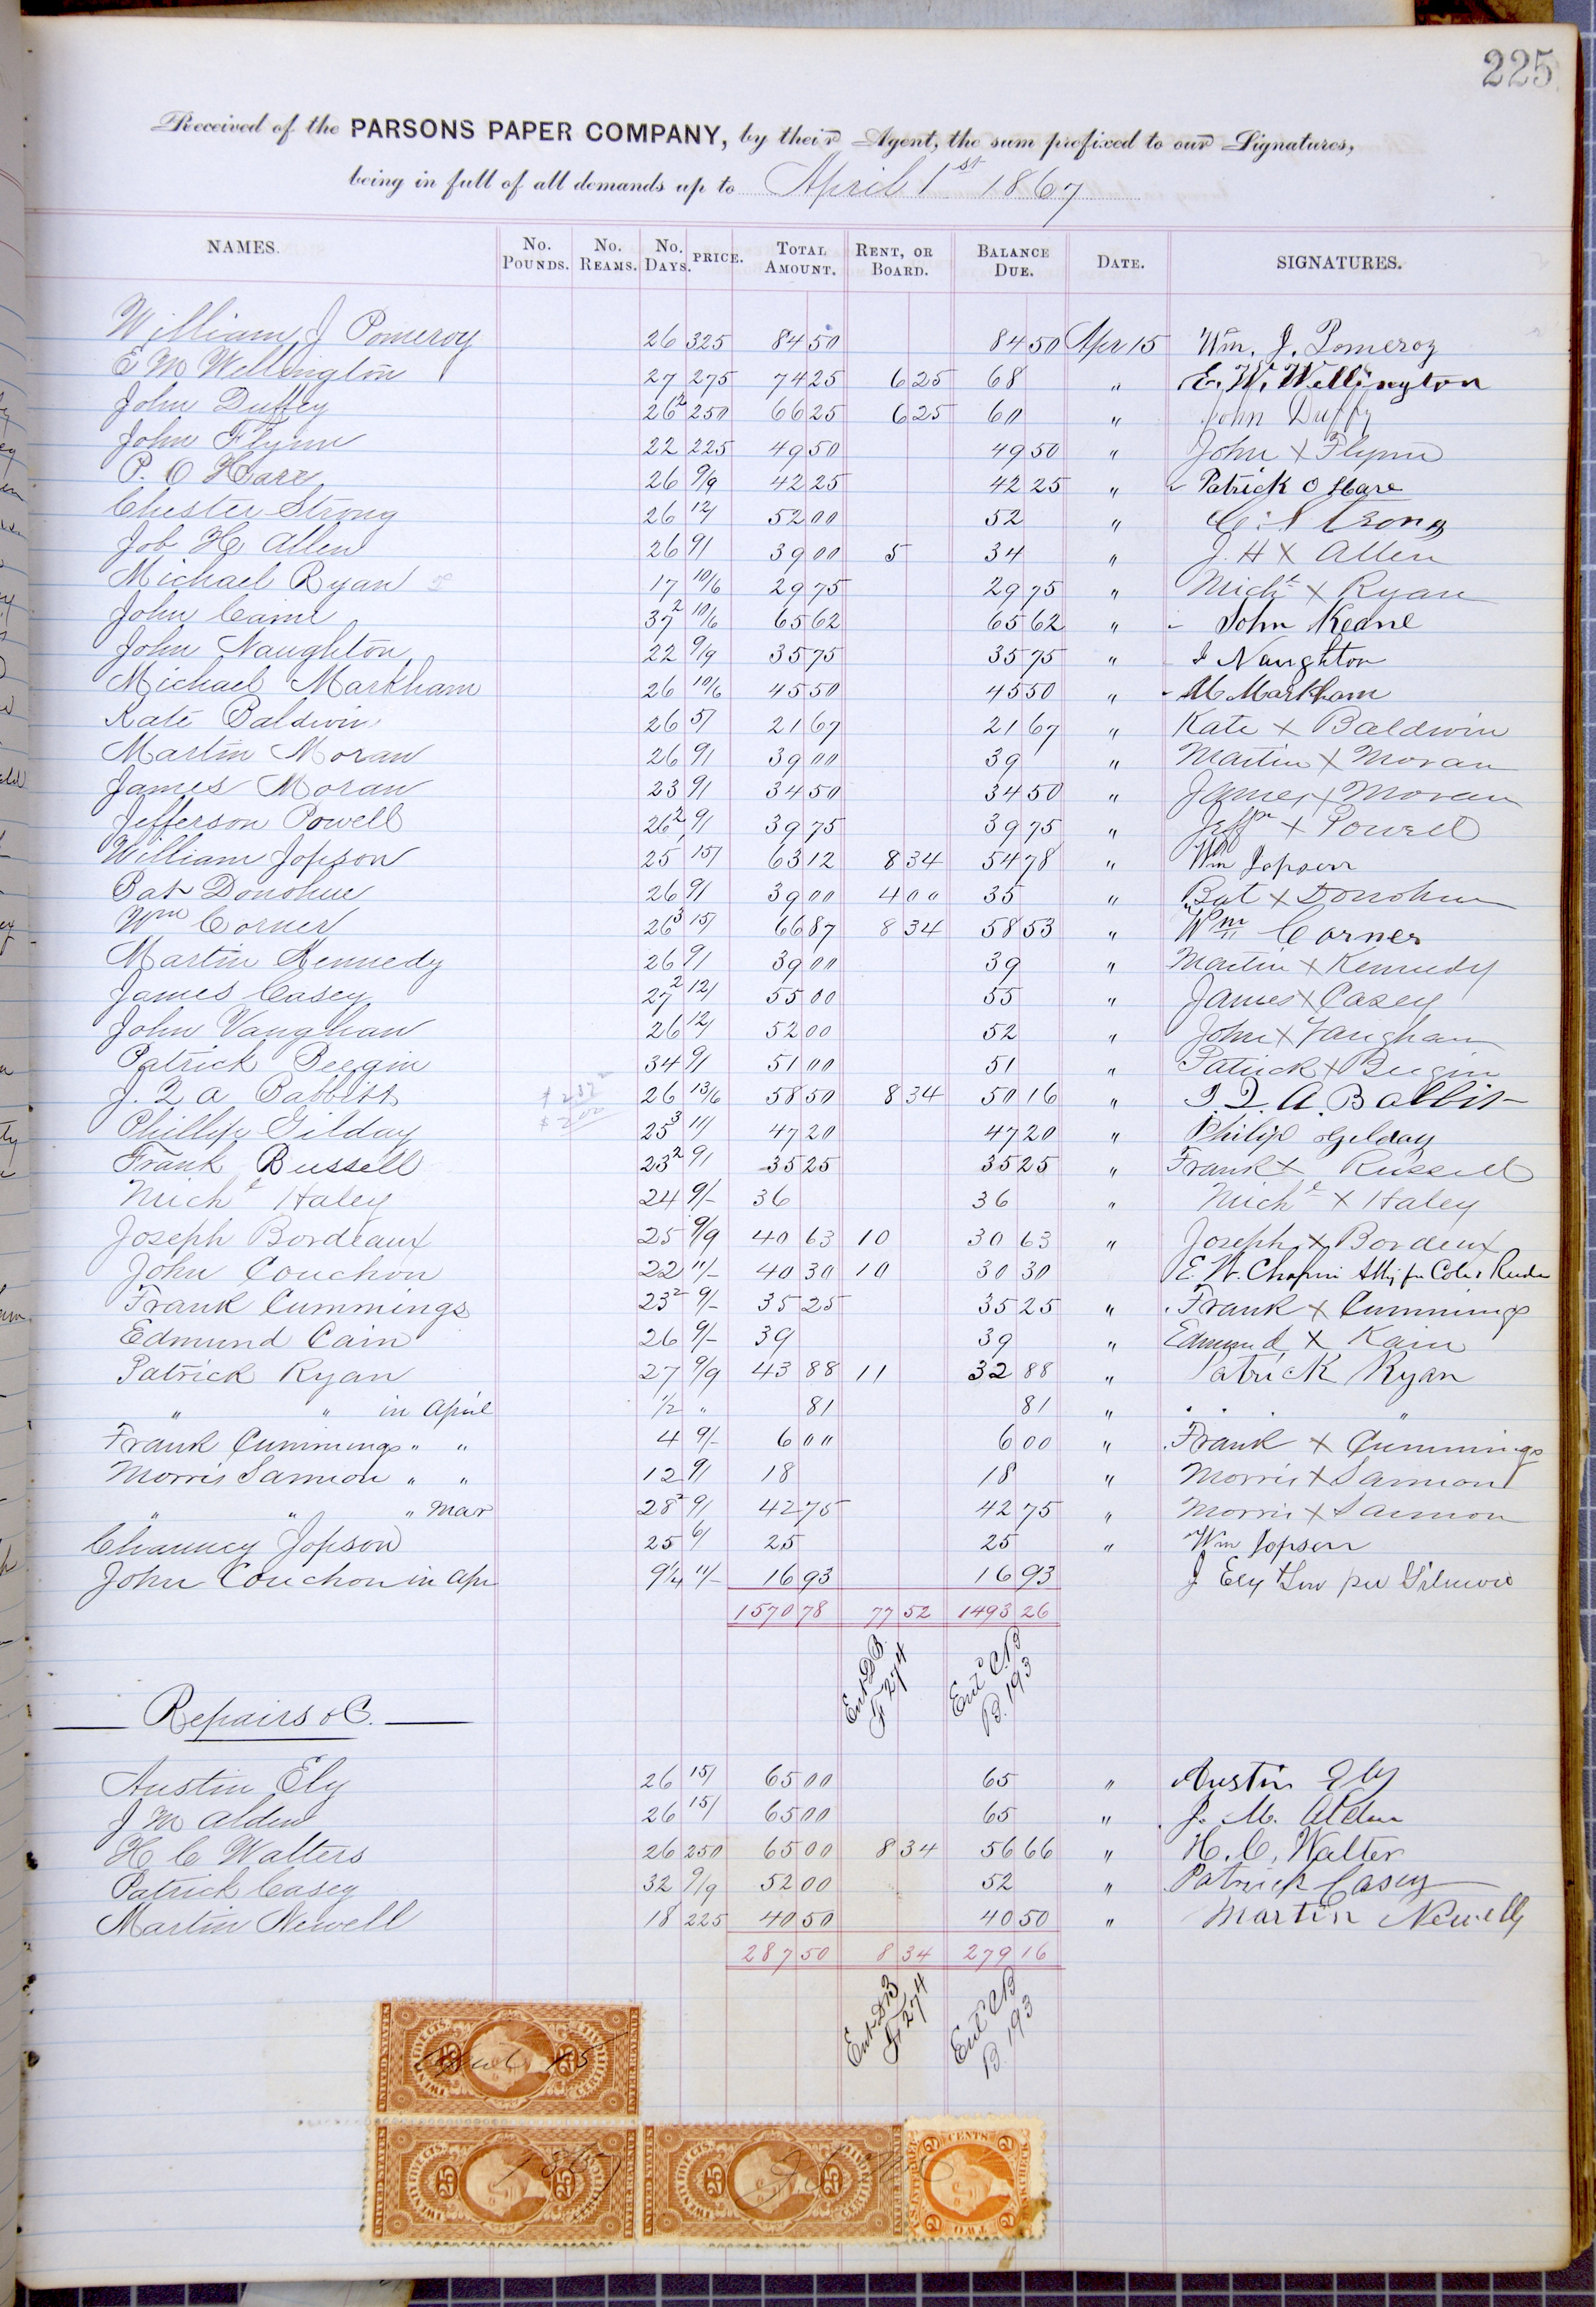 225
Received of the PARSONS PAPER COMPANY, by their Agent, the sum prefixed to our Signatures,
being in full of all demands up to April 1st 1867
NAMES. No. POUNDS. No. REAMS. No. DAYS. PRICE. TOTAL AMOUNT. RENT, OR BOARD. BALANCE DUE. DATE. SIGNATURES.
William J Pomeroy 26 325 84 50 84 50 Apr 15 Wm. J. Pomeroy
E M Wellington 27 275 74 25 6 25 68 " E. W. Wellington
John Duffey 26 2 250 66 25 6 25 60 " John Duffy
John Flynn 22 225 49 50 49 50 " John X Flynn
P. O Hare 26 9/9 42 25 42 25 " Patrick O Hare
Chester Strong 26 12/ 52 00 52 " C. Strong
Job H Allen 26 9/ 39 00 5 34 " J. H X Allen
Michael Ryan 17 10/6 29 75 29 75 " Michl X Ryan
John Caine 37 2 10/6 65 62 65 62 " John Keane
John Naughton 22 9/9 35 75 35 75 " J Naughton
Michael Markham 26 10/6 45 50 45 50 " M Markham
Kate Baldwin 26 5/ 21 67 21 67 " Kate X Baldwin
Martin Moran 26 9/ 39 00 39 " Martin X Moran
James Moran 23 9/ 34 50 34 50 " James X Moran
Jefferson Powell 26 2 9/ 39 75 39 75 " Jeffn X Powell
William Jopson 25 1 15/ 63 12 8 34 54 78 " Wm Jopson
Bat Donohue 26 9/ 39 00 4 00 35 " Bat X Donohue
Wm Corner 26 3 15/ 66 87 8 34 58 53 " Wm Corner
Martin Kennedy 26 9/ 39 00 39 " Martin X Kennedy
James Casey 27 2 12/ 55 00 55 " James X Casey
John Vaughan 26 12/ 52 00 52 " John X Vaughan
Patrick Beegin 34 9/ 51 00 51 " Patrick X Beegin
J. Q A Babbitt 26 13/6 58 50 8 34 50 16 " J. Q. A. Babbit
Phillip Gilday 25 3 11/ 47 20 47 20 " Philip Gilday
Frank Russell 23 2 9/ 35 25 35 25 " Frank X Russell
Michl Haley 24 9/- 36 36 " Michl X Haley
Joseph Bordeaux 25 9/9 40 63 10 30 63 " Joseph X Bordeux
John Couchon 22 11/- 40 30 10 30 30 E. W. Chapin Atty for Coles
Frank Cummings 23 2 9/- 35 25 35 25 " Frank X Cummings
Edmund Cain 26 9/- 39 39 " Edmund X Kain
Patrick Ryan 27 9/9 43 88 11 32 88 " Patrick Ryan
" " in April 1/2 " 81 81 " " "
Frank Cummings " " 4 9/- 6 00 6 00 " Frank X Cummings
Morris Sannon " " 12 9/ 18 18 " Morris X Sannon
" " " Mar 28 2 9/ 42 75 42 75 " Morris X Sannon
Chauncy Jopson 25 6/ 25 25 " Wm Jopson
John Couchon in Apr 9 1/4 11/- 16 93 16 93 J Ely
1570 78 77 52 1493 26
Ent DB
F 274
Entd CB
B. 193
Repairs &C.
Austin Ely 26 15/ 65 00 65 " Austin Ely
J M Alden 26 15/ 65 00 65 " J. M. Alden
H C Walters 26 250 65 00 8 34 56 66 " H. C. Walter
Patrick Casey 32 9/9 52 00 52 " Patrick Casey
Martin Newell 18 225 40 50 40 50 " Martin Newell
287 50 8 34 279 16
Ent DB
F 274
Entd CB
B. 193
UNITED STATES INTER. REVENUE 25 TWENTY FIVE CTS. CERTIFICATE April 15
UNITED STATES INTER. REVENUE 25 TWENTY FIVE CTS. CERTIFICATE 1867
UNITED STATES INTER. REVENUE 25 TWENTY FIVE CTS. CERTIFICATE
U.S. INTER. REV. 2 CENTS 2 BANK CHECK TWO